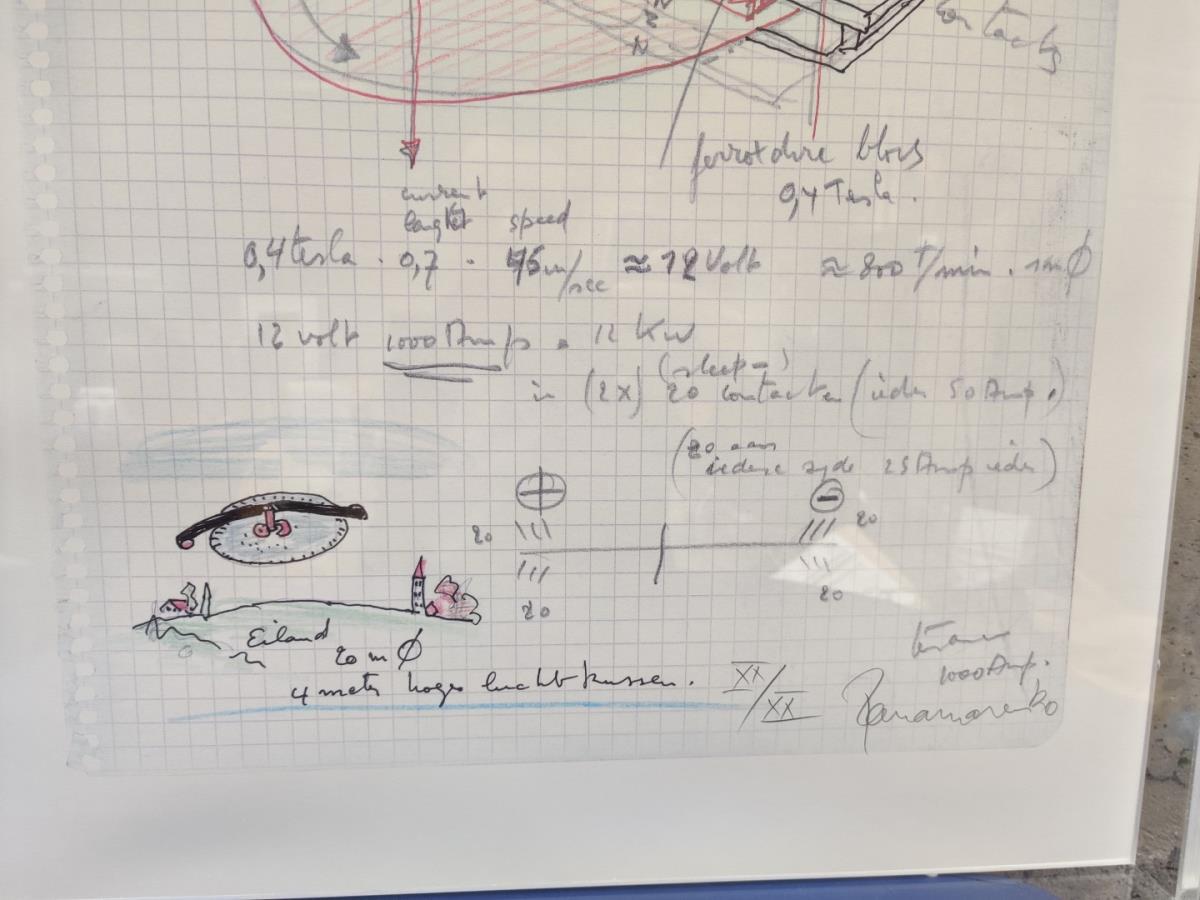 N
Z
N
contacts
ferroxdure blocs
0,4 Tesla.
current
lenght speed
0,4 tesla . 0,7 . 45 m/sec ≈ 12 Volt ≈ 800 T/min . 1m Ø
12 volt 1000 Amp = 12 KW
(sleep-)
in (2x) 20 contacten (ieder 50 Amp.)
(20 aan
iedere zyde 25 Amp ieder)
+ -
20 20
20 20
Eiland
20 m Ø
4 meter hoges luchtkussen.
1000 Amp.
XX/XX Panamarenko